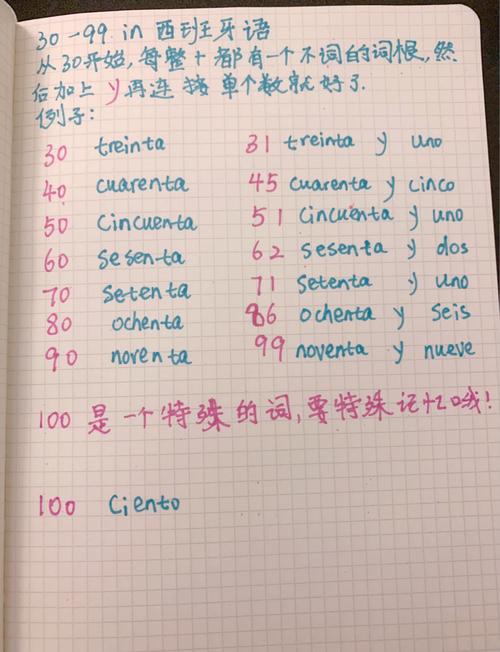 30-99 in 西班牙语
从30开始,每整十都有一个不词的词根,然
后加上 y 再连接单个数就好了.
例子:
30 treinta 31 treinta y uno
40 cuarenta 45 cuarenta y cinco
50 Cincuenta 51 Cincuenta y uno
60 sesenta 62 sesenta y dos
70 setenta 71 Setenta y uno
80 ochenta 86 ochenta y seis
90 norenta 99 noventa y nueve
100 是一个特殊的词,要特殊记忆哦!
100 Ciento